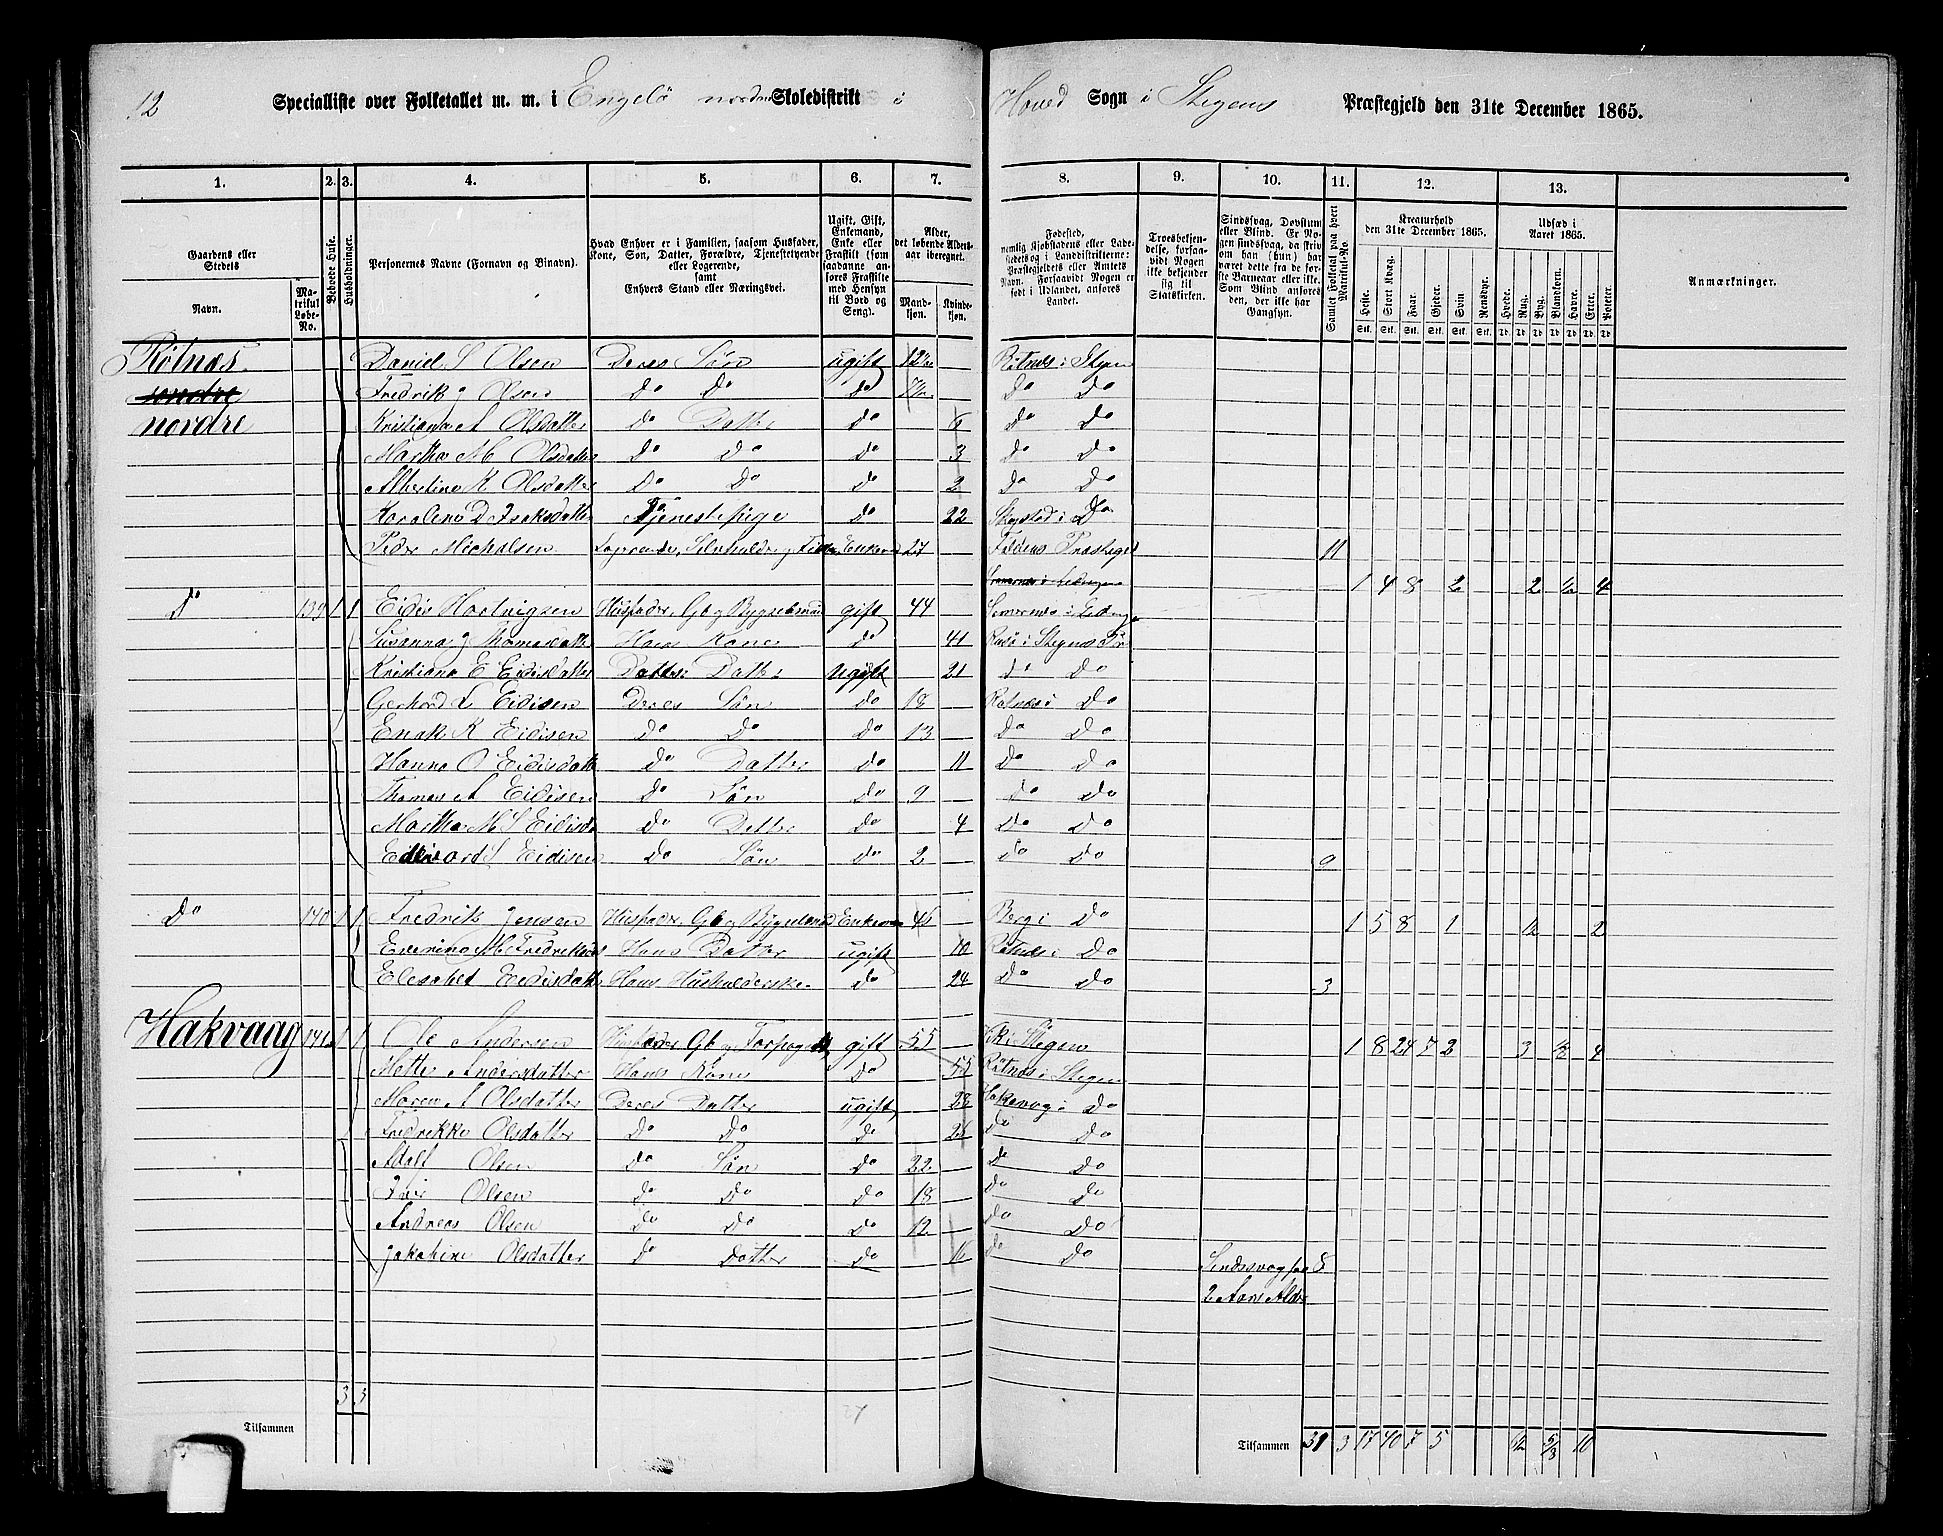 12 Specialliste over Folketallet m. m. i Engelö nordre Skoledistrikt i Hoved Sogn i Stegens Præstegjeld den 31te December 1865.
1. 2. 3. 4. 5. 6. 7. 8. 9. 10. 11. 12. 13.
Gaardens eller Stedets
Navn.
Matrikul Løbe-No.
Beboede Huse.
Husholdninger.
Personernes Navne (Fornavn og Binavn).
Hvad Enhver er i Familien, saasom Husfader, Kone, Søn, Datter, Forældre, Tjenestetyende eller Logerende, samt Enhvers Stand eller Næringsvei.
Ugift, Gift, Enkemand, Enke eller Fraskilt (som saadanne anføres Fraskilte med Hensyn til Bord og Seng).
Alder, det løbende Aldersaar iberegnet.
Mandkjøn. Kvindekjøn.
Fødested,
Troesbekjendelse, forsaavidt Nogen ikke bekjender sig til Statskirken.
Samlet Folketal paa hvert Matrikul-No.
Kreaturhold den 31te December 1865.
Heste. Stort Kvæg. Faar. Gjeder. Svin. Rensdyr.
Udsæd i Aaret 1865.
Hvede. Rug. Byg. Blandkorn. Havre. Erter. Poteter.
Anmærkninger.
Rølnæs Daniel S Olsen Deres Søn ugift 12 Rötnæs i Stegen
søndre Fredrik J Olsen Do Do Do Do Do
nordre Kristiana A Olsdatter Do Datter Do 6 Do Do
Martha M Olsdatter Do Do Do 3 Do Do
Albertina K Olsdatter Do Do Do 2 Do Do
D Tjenestepige Do 22 Do
Peder Michalsen 27 Foldens 11
1 4 8 2 2 4
Do 139 1 1 Eidis Hartvigsen Husfader, Gb og Bygselmand gift 44
Susanna J Thomasdatter Hans Kone do 41 i Stegens
Kristiana E Eidisdatter Datter ugift 21 Do Do
Gerhard L Eidisen Deres Søn Do 18 Rötnæs i Do
Enok K Eidisen Do Do Do 13 Do Do
Hanna O Eidisdatter Do Datter Do 11 Do Do
Thomas A Eidisen Do Søn Do 9 Do Do
Martha M S Eidisd Do Datter Do 4 Do Do
Edevard S Eidisen Do Søn Do 2 Do Do 9
Do 140 1 1 Fredrik Jensen Husfader, Gb og Enkem Berg i Do 1 5 8 1 2
M Fredriksd Hans Datter ugift 10 Rötnæs i Do
Elesabet Eidisdatt Hans Husholderske Do 24 Do Do 3
Hakvaag 141 1 1 Ole Andersen Husfader Gb og gift 55 i Stegen 1 8 24 7 2 3 4
Mette Andersdatter Hans Kone Do 55 Rötnæs i Stegen
Maren A Olsdatter Deres Datter ugift 28 Do
Fredrikke Olsdatter Do Do Do Do Do
Adolf Olsen Do Søn Do 22 Do Do
Olsen Do Do Do 18 Do Do
Andreas Olsen Do Do Do 12 Do Do
Jakobine Olsdatter Do Datter Do 16 Do Do Sindssvag fra 8
2 Aars Alder
3 3
Tilsammen
Tilsammen 31 3 17 40 7 5 10